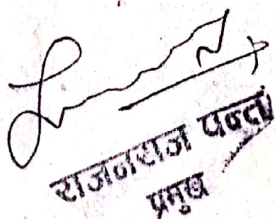 राजनराज पन्त
प्रमुख